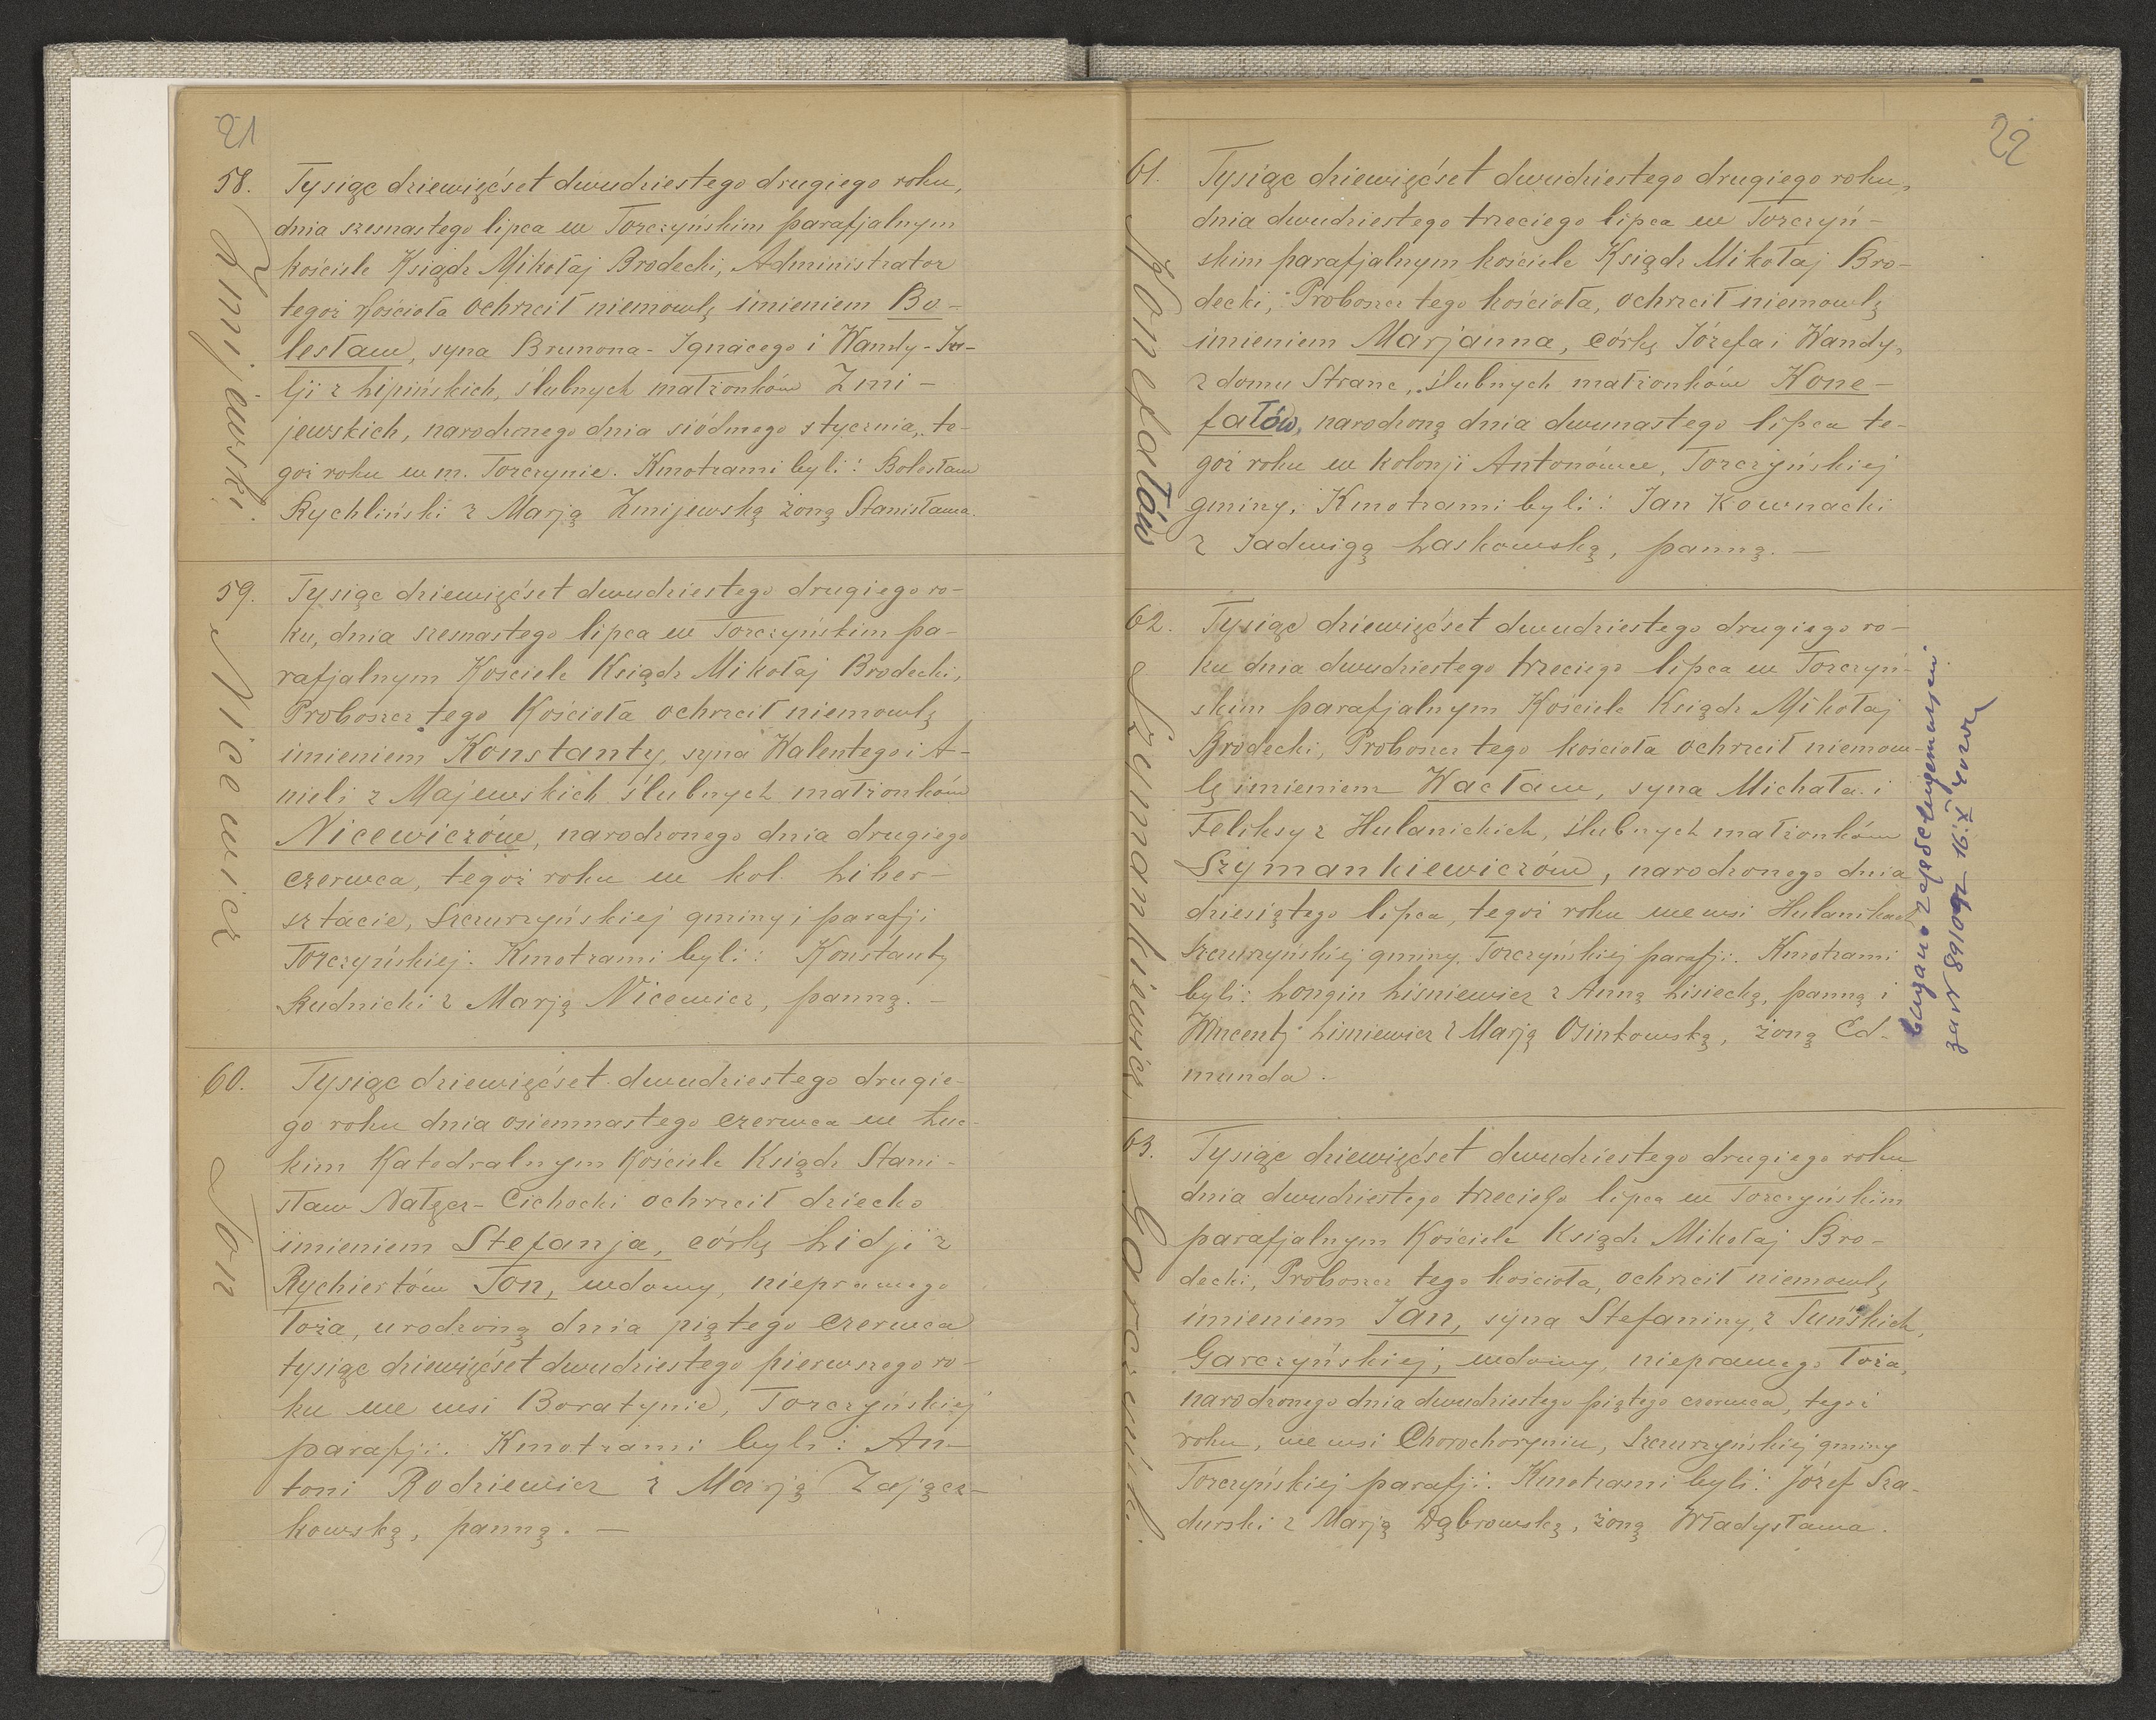 21
58.
Żmijewski.
Tysiąc dziewięćset dwudziestego drugiego roku,
dnia szesnastego lipca w Torczyńskim parafjalnym
kościele Ksiądz Mikołaj Brodecki, Administrator
tegoż Kościoła ochrzcił niemowlę imieniem Bo-
lesław, syna Brunona-Ignacego i Wandy-Ju-
lji z Lipińskich, ślubnych małżonków Żmi-
jewskich, narodzonego dnia siódmego stycznia, te-
goż roku w m. Torczynie. Kmotrami byli: Bolesław
Rychliński z Marją Żmijewską żoną Stanisława.
59.
Nicewicz
Tysiąc dziewięćset dwudziestego drugiego ro-
ku, dnia szesnastego lipca w Torczyńskim pa-
rafjalnym Kościele Ksiądz Mikołaj Brodecki,
Proboszcz tego Kościoła ochrzcił niemowlę
imieniem Konstanty, syna Walentego i A-
nieli z Majewskich ślubnych małżonków
Nicewiczów, narodzonego dnia drugiego
czerwca, tegoż roku w kol. Liber-
sztacie, Szczurzyńskiej gminy i parafji
Torczyńskiej. Kmotrami byli: Konstanty
Rudnicki z Marją Nicewicz, panną. -
60.
Ton
Tysiąc dziewięćset dwudziestego drugie-
go roku dnia osiemnastego czerwca w Łuc-
kim Katedralnym Kościele Ksiądz Stani-
sław Nałęcz-Cichocki ochrzcił dziecko
imieniem Stefanja, córkę Lidji z
Rychiertów Ton, wdowy, nieprawego
łoża, urodzoną dnia piątego czerwca
tysiąc dziewięćset dwudziestego pierwszego ro-
ku we wsi Boratynie, Torczyńskiej
parafji. Kmotrami byli: An-
toni Rodziewicz z Marją Zającz-
kowską, panną. -
22
61.
Konefałów
Tysiąc dziewięćset dwudziestego drugiego roku,
dnia dwudziestego trzeciego lipca w Torczyń-
skim parafjalnym kościele Ksiądz Mikołaj Bro-
decki, Proboszcz tego kościoła, ochrzcił niemowlę
imieniem Marjanna, córkę Józefa i Wandy,
z domu Stranc, ślubnych małżonków Kone-
fałów, narodzoną dnia dwunastego lipca te-
goż roku w kolonji Antonówce, Torczyńskiej
gminy. Kmotrami byli: Jan Kownacki
z Jadwigą Laskowską, panną. -
62.
Szymankiewicz.
Tysiąc dziewięćset dwudziestego drugiego ro-
ku dnia dwudziestego trzeciego lipca w Torczyń-
skim parafjalnym Kościele Ksiądz Mikołaj
Brodecki, Proboszcz tego kościoła ochrzcił niemow-
lę imieniem Wacław, syna Michała i
Feliksy z Hulanickich, ślubnych małżonków
Szymankiewiczów, narodzonego dnia
dziesiątego lipca, tegoż roku we wsi Hulanikach
Szczurzyńskiej gminy, Torczyńskiej parafji. Kmotrami
byli: Longin Liśniewicz z Anną Lisiecką, panną i
Wincenty Liśniewicz z Marją Osinkowską, żoną Ed-
munda.
за N 89/092 16.X
63.
Garczyński.
Tysiąc dziewięćset dwudziestego drugiego roku
dnia dwudziestego trzeciego lipca w Torczyńskim
parafjalnym Kościele Ksiądz Mikołaj Bro-
decki, Proboszcz tego kościoła, ochrzcił niemowlę
imieniem Jan, syna Stefaniny, z Tuńskich,
Garczyńskiej, wdowy, nieprawego łoża,
narodzonego dnia dwudziestego piątego czerwca, tegoż
roku, we wsi Chorochoryniu, Szczurzyńskiej gminy
Torczyńskiej parafji. Kmotrami byli: Józef Sza-
durski z Marją Dąbrowską, żoną Władysława.